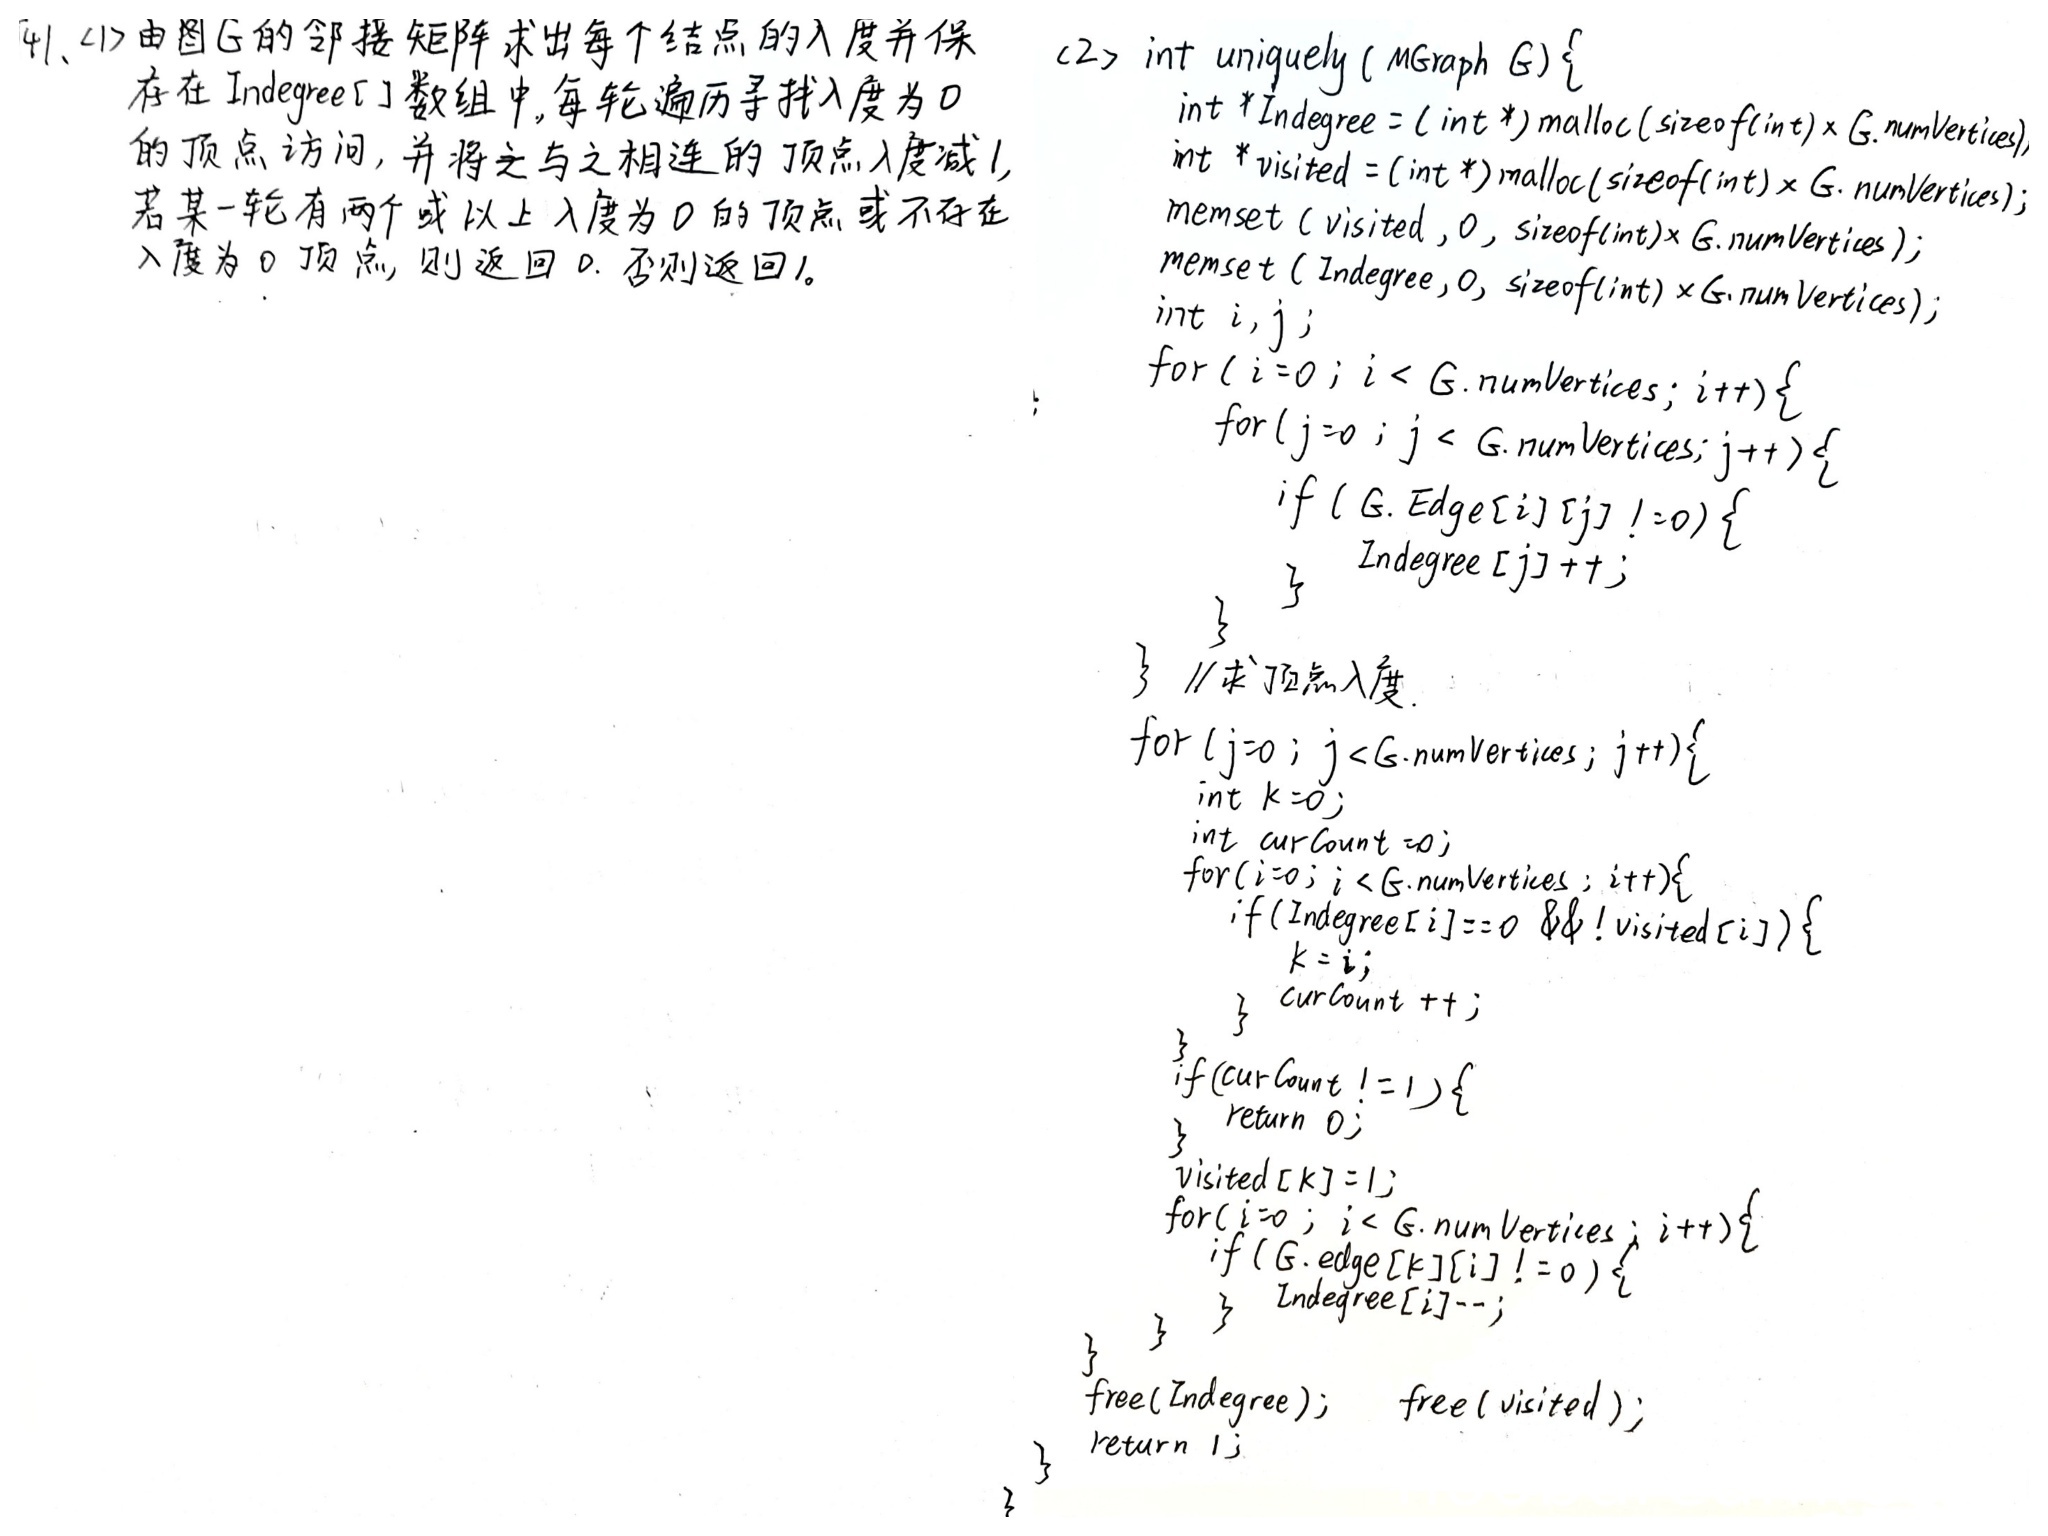 41、<1>由图G的邻接矩阵求出每个结点的入度并保
存在Indegree[]数组中,每轮遍历寻找入度为0
的顶点访问,并将之与之相连的顶点入度减1,
若某一轮有两个或以上入度为0的顶点或不存在
入度为0顶点,则返回0.否则返回1。
<2> int uniquely ( MGraph G) {
int *Indegree = (int *) malloc (sizeof(int) × G.numVertices),
int *visited = (int *) malloc(sizeof(int) × G.numVertices);
memset ( visited , 0 , sizeof(int)× G.numVertices);
memset ( Indegree, 0, sizeof(int) × G.numVertices);
int i, j ;
for ( i=0 ; i < G.numVertices; i++) {
;
for( j=0 ; j < G.numVertices; j++) {
if ( G.Edge[i][j] !=0) {
Indegree [j]++;
}
}
} //求顶点入度.
for (j=0 ; j<G.numVertices; j++){
int k=0;
int curCount =0;
for(i=0; i<G.numVertices ; i++){
if(Indegree[i]==0 && !visited[i]) {
k = i;
} curCount ++;
}
if(curCount !=1) {
return 0;
}
visited[k]=1;
for(i=0 ; i< G.numVertices; i++) {
if ( G.edge[k][i] !=0) {
} Indegree[i]--;
}
}
free(Indegree); free(visited);
return 1;
}
}